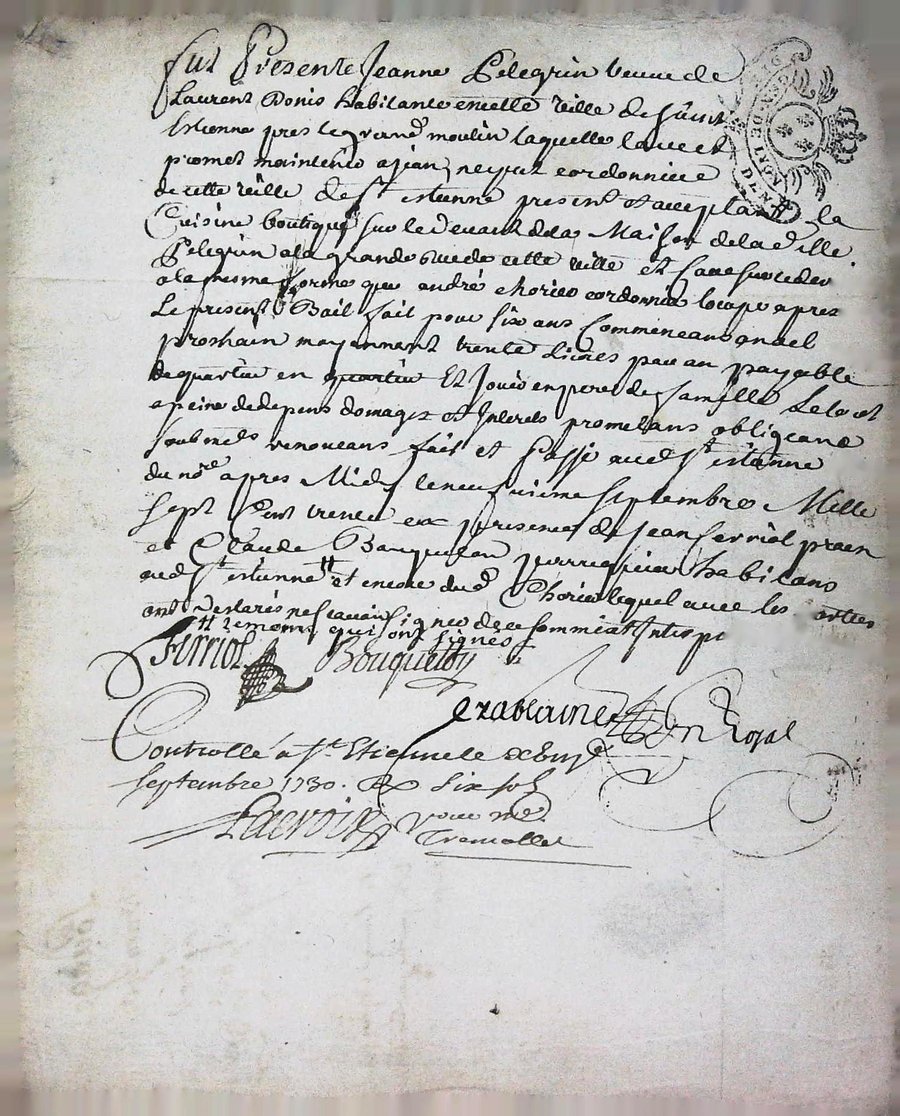 fut Presente Jeanne Pelegrin veuve de
Laurent Donis habitante en cette ville de saint
Estienne pres le grand moulin laquelle
promet maintenir a jean cordonnier
de cette ville de St estienne present et acceptant la
Cuisine boutique sur le devant de la Maison de lad. ville
Pelegrin a la grande rue de cette ville et cave
a la mesme forme que andré chorier cordonnier loccupe apres
Le present Bail fait pour six ans Commenceans a noel
prochain moyennant trente Livres par an payable
de quartier en quartier Et Jouir en pere de famille Le tout
a peine de depens domages et Interets prometans obligeans
soubmets renonceans fait et Passé aud St estienne
du nore apres Midy le septembre Mille
sept Cent trente en presence de jean ferriol
et Claude Bouqueton perruquier habitans
aud St estienne et encore dud Chorier lequel avec les parties
ont declarés ne scavoir signer de ce sommés et Interp
temoins qui ont signés
Ferriol Bouqueton
Nre Royal
Controllé a St Etienne le
Septembre 1730. R six sols
Lacroix pour me
Tremollet
GEN. DE LYON
DEN.